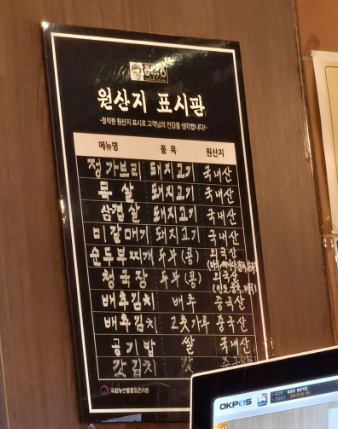 원산지 표시판
-철저한 원산지 표시로 고객님의 건강을 생각합니다!-
메뉴명 품목 원산지
정가브리 돼지고기 국내산
목살 돼지고기 국내산
삼겹살 돼지고기 국내산
미갈매기 돼지고기 국내산
순두부찌개 두부(콩) 외국산
청국장 두부(콩) 외국산
배추김치 배추 중국산
배추김치 고춧가루 중국산
공기밥 쌀 국내산
갓김치 갓
국립농산물품질관리원
OKPOS